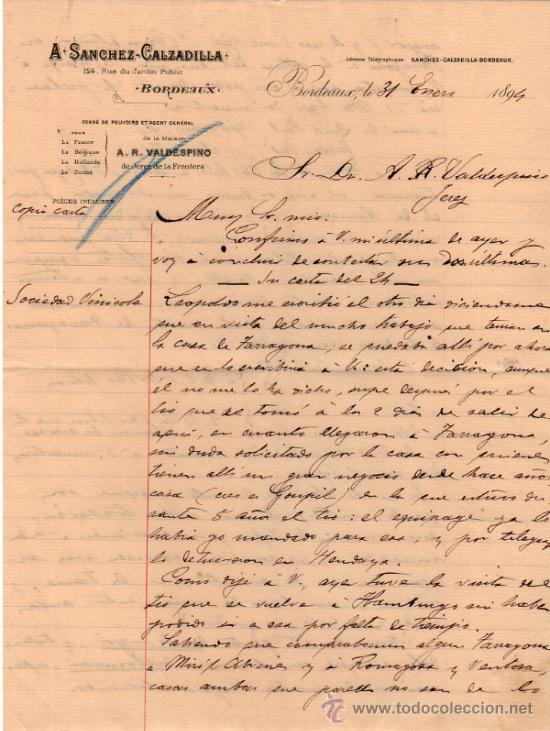 A. SANCHEZ-CALZADILLA
124, Rue du Jardin Public
BORDEAUX
Adresse Télégraphique: SANCHEZ-CALZADILLA-BORDEAUX.
Bordeaux, le 31 Enero 1894
FONDÉ DE POUVOIRS ET AGENT GÉNÉRAL
POUR
La France
La Belgique
La Hollande
La Suisse
de la Maison
A. R. VALDESPINO
de Jerez de la Frontera
PIÈCES INCLUSES
copia carta
Sr. Dn. A. R. Valdespino
Jerez
Muy Sr. mio:
Confirmo á V. mi última de ayer y
voy á concluir de contestar sus dos últimas.
Su carta del 24
Sociedad Vinícola
Leopoldo me escribió el otro dia diciendome
que en vista del mucho trabajo que tenian en
la casa de Tarragona, se quedaba alli por ahora
que se lo escribiria á V: esta decision, aunque
él no me lo ha dicho, supe despues por el
tio que se tomó á los 2 dias de salir de
aqui, en cuanto llegaron á Tarragona,
sin duda solicitado por la casa con quienes
tienen alli un gran negocio desde hace años,
casa (creo es Goupil) en la que estuvo du-
rante 5 años el tio: el equipage ya lo
habia yo mandado para esa, y por telegrafo
lo detuvieron en Hendaya.
Como dije á V. ayer tuve la visita del
tio que se vuelve á Hamburgo sin haber
podido ir a esa por falta de tiempo.
Sabiendo que compraban algun Tarragona
a y á Romagosa y Ventosa,
casas ambas que parece no son de lo
www.todocoleccion.net